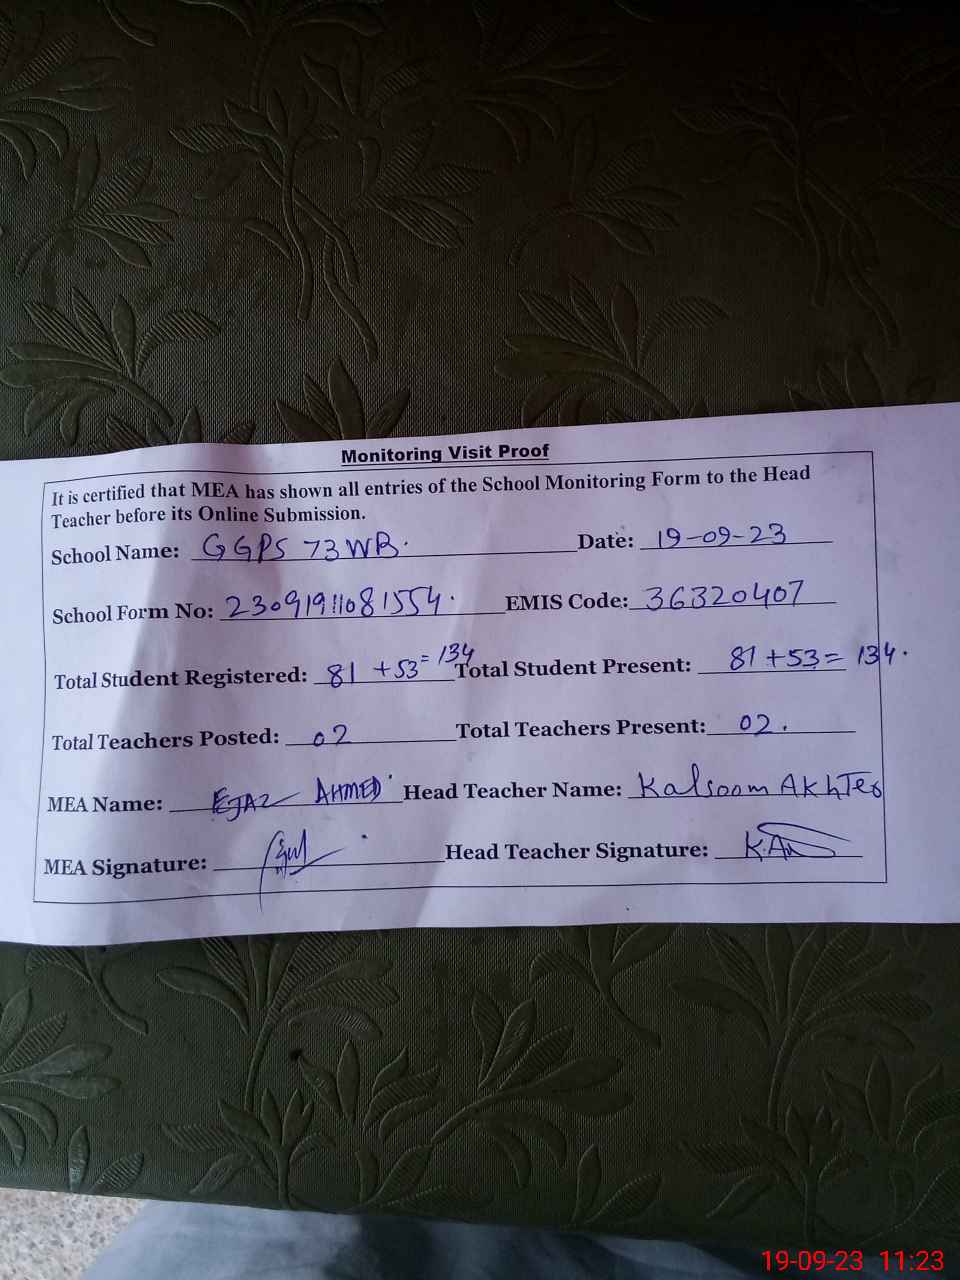 Monitoring Visit Proof
It is certified that MEA has shown all entries of the School Monitoring Form to the Head
Teacher before its Online Submission.
School Name: GGPS 73 WB. Date: 19-09-23
School Form No: 2309191108 1554. EMIS Code: 36320407
Total Student Registered: 81 + 53 = 134 Total Student Present: 81 + 53 = 134.
Total Teachers Posted: 02 Total Teachers Present: 02.
MEA Name: EJAZ AHMED Head Teacher Name: Kalsoom Akhter
MEA Signature: Head Teacher Signature: K.A
19-09-23 11:23